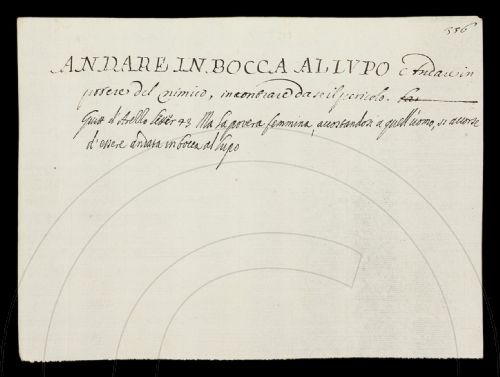 336
ANDARE IN BOCCA AL LUPO è Andare in
potere del nimico, incontrare da se il pericolo.
Guit d'Arezzo lett: 43 Ma la povera femmina, accostandosi a quell'uomo, si accorse
d'essere andata in bocca al lupo